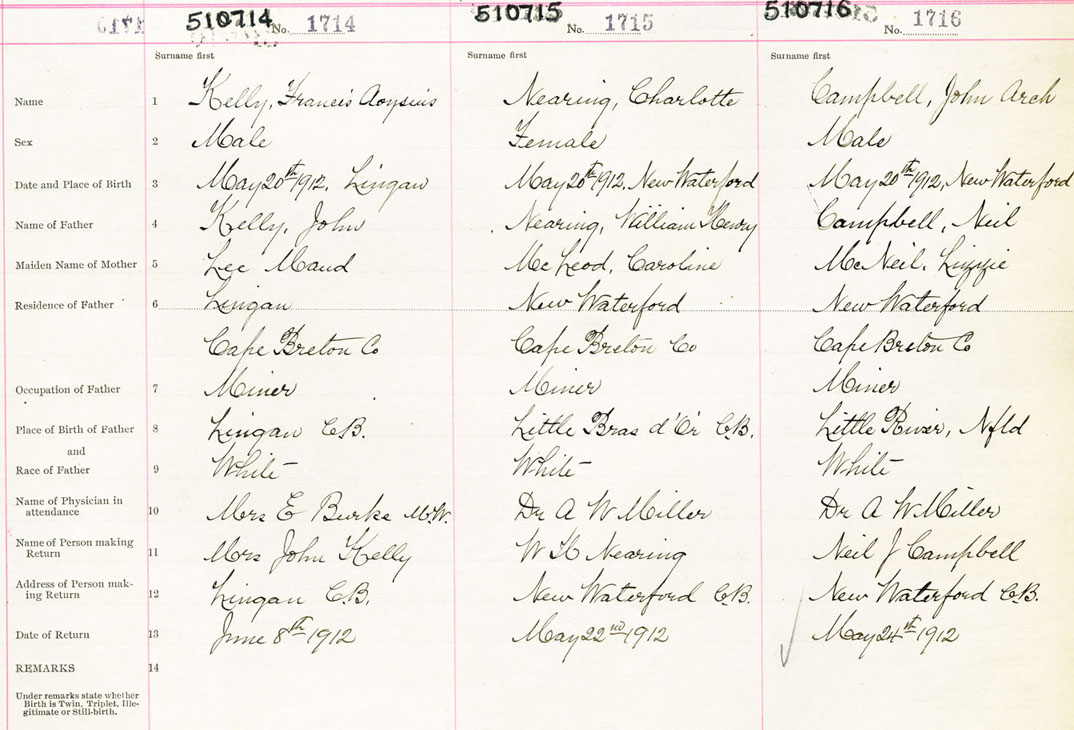 510714 No. 1714 510715 No. 1715 510716 No. 1716
Surname first Surname first Surname first
Name 1 Kelly, Francis Aoysius Nearing, Charlotte Campbell, John Arch
Sex 2 Male Female Male
Date and Place of Birth 3 May 20th 1912, Lingan May 20th 1912, New Waterford May 20th 1912, New Waterford
Name of Father 4 Kelly, John Nearing, William Henry Campbell, Neil
Maiden Name of Mother 5 Lee Maud McLeod, Caroline McNeil, Lizzie
Residence of Father 6 Lingan New Waterford New Waterford
Cape Breton Co Cape Breton Co Cape Breton Co
Occupation of Father 7 Miner Miner Miner
Place of Birth of Father 8 Lingan C.B. Little Bras d'Or C.B. Little River, Nfld
and
Race of Father 9 White White White
Name of Physician in
attendance 10 Mrs E Burke M.W. Dr A W Miller Dr A W Miller
Name of Person making
Return 11 Mrs John Kelly W H Nearing Neil J Campbell
Address of Person mak-
ing Return 12 Lingan C.B. New Waterford C.B. New Waterford C.B.
Date of Return 13 June 8th 1912 May 22nd 1912 May 24th 1912
REMARKS 14
Under remarks state whether
Birth is Twin, Triplet, Ille-
gitimate or Still-birth.